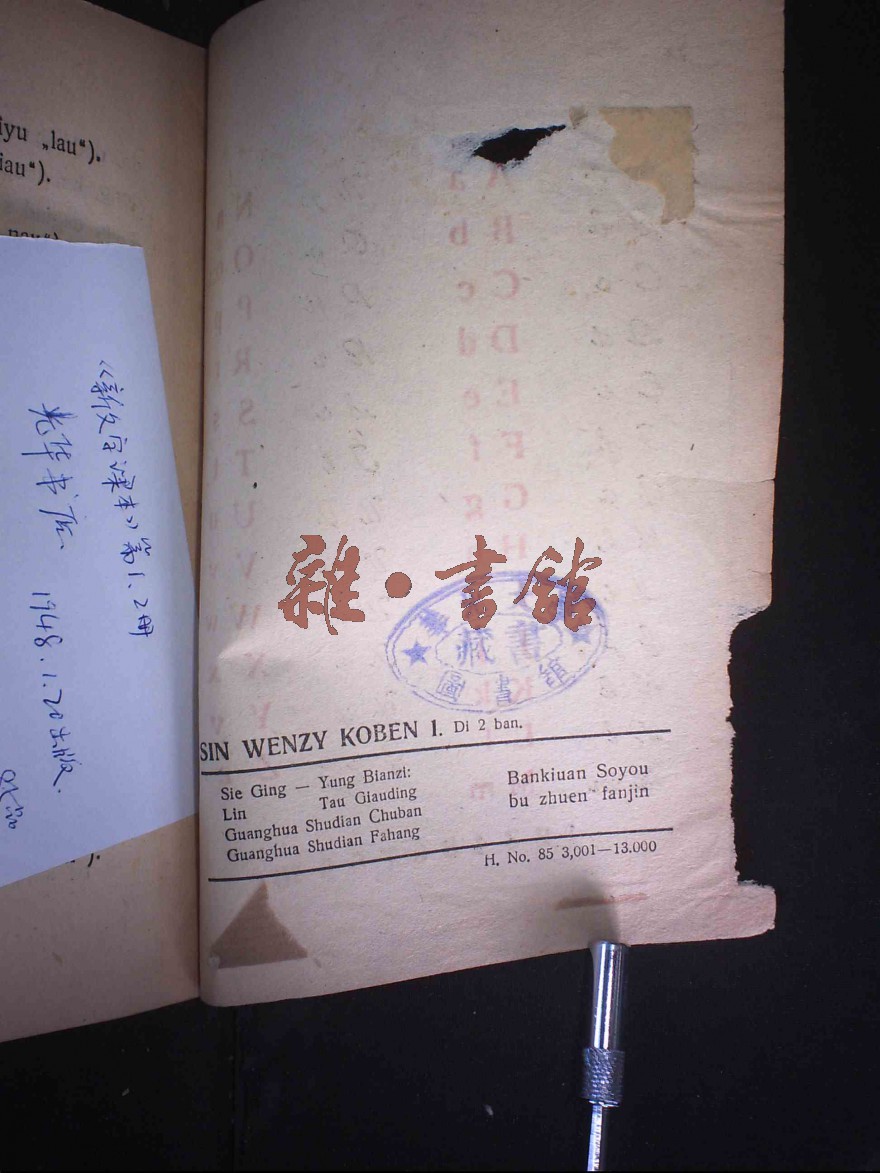 iyu „lau“).
iau“).
《新文字课本》第1、2册
光华书店
1948.1.20出版.
雜·書館
藏書
圖書館
SIN WENZY KOBEN I. Di 2 ban.
Sie Ging — Yung Bianzi:
Lin Tau Giauding
Guanghua Shudian Chuban
Guanghua Shudian Fahang
Bankiuan Soyou
bu zhuen fanjin
H. No. 85 3,001—13.000